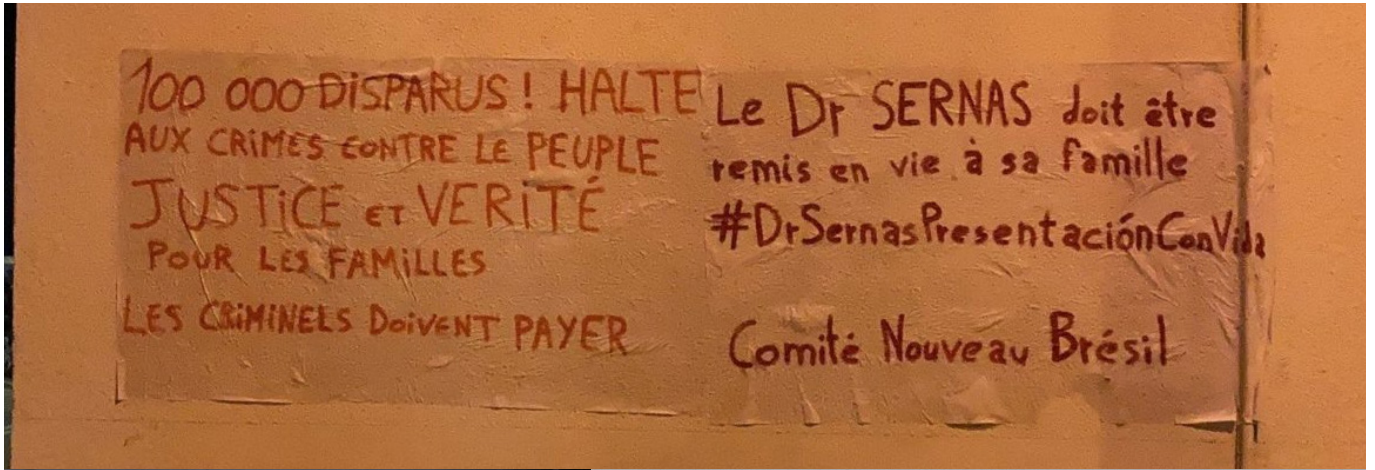 100 000 DiSPARUS ! HALTE
AUX CRiMES CONTRE LE PEUPLE
JUSTiCE ET VERiTÉ
POUR LES FAMiLLES
LES CRiMiNELS DoiVENT PAYER
Le Dr SERNAS doit être
remis en vie à sa famille
#DrSernasPresentaciónConVida
Comité Nouveau Brésil